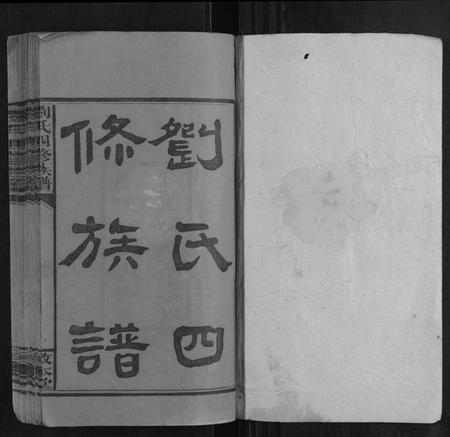 劉氏四
修族譜
劉氏四修族譜